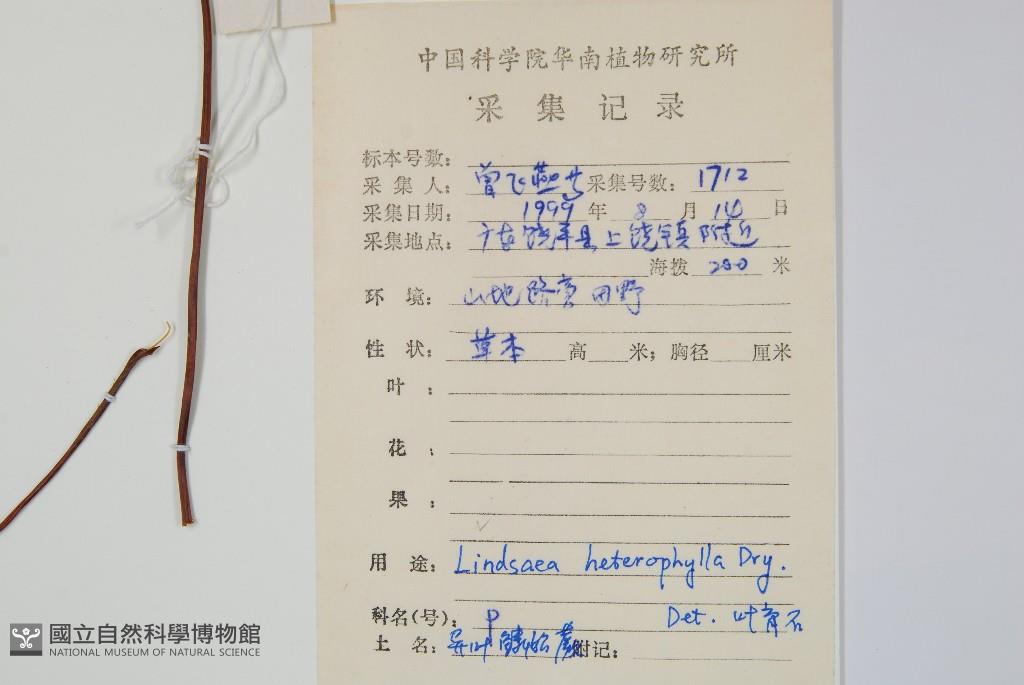 中国科学院华南植物研究所
采集记录
标本号数:
采集人: 曾飞燕 采集号数: 1712
采集日期: 1999 年 8 月 14 日
采集地点: 广东饶平县上饶镇附近
海拨 280 米
环境: 山地路旁田野
性状: 草本 高 米; 胸径 厘米
叶:
花:
果:
用途: Lindsaea heterophylla Dry.
科名(号): P Det. 叶育石
土名: 异叶鳞始蕨 附记:
國立自然科學博物館
NATIONAL MUSEUM OF NATURAL SCIENCE